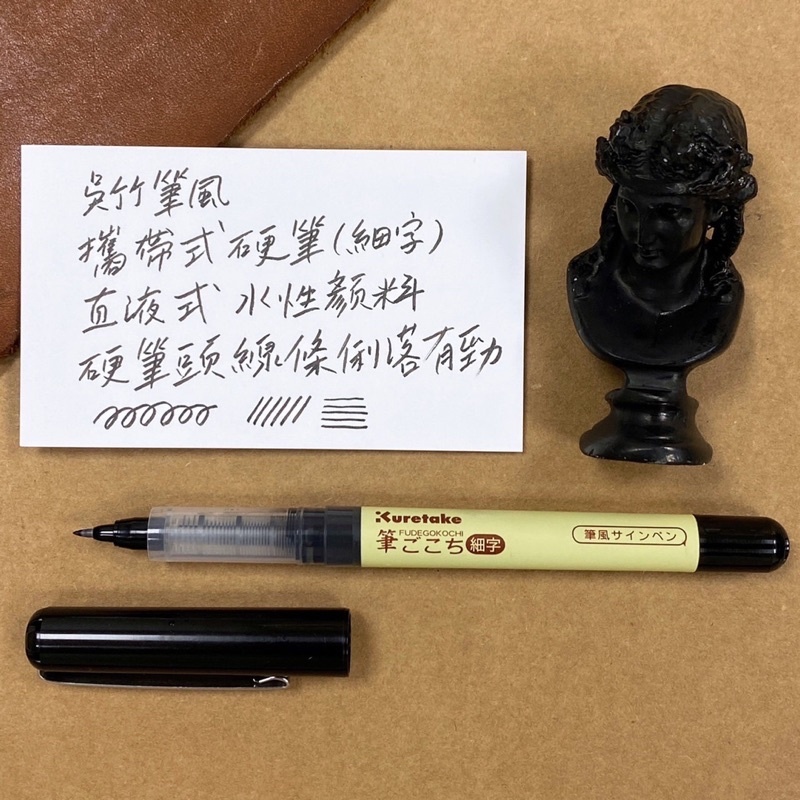 吳竹筆風
攜帶式硬筆(細字)
直液式 水性顏料
硬筆頭線條俐落有勁
Kuretake
FUDEGOKOCHI
筆ごこち 細字
筆風サインペン